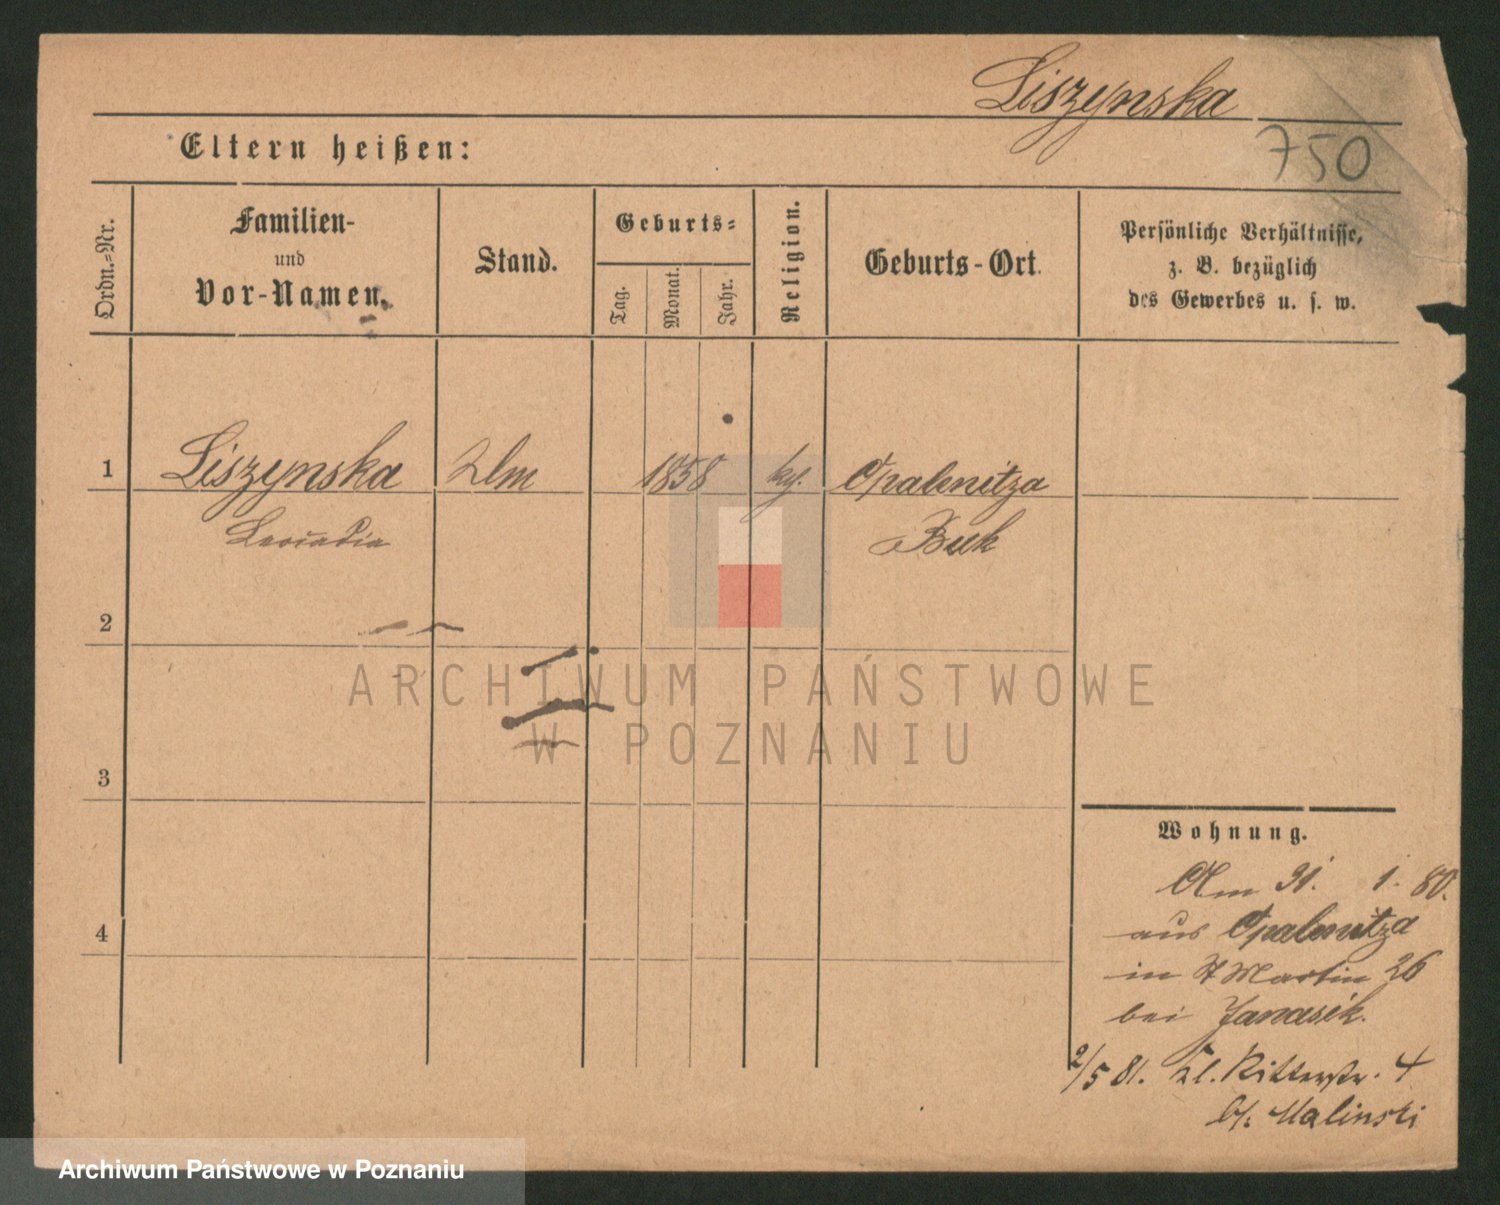 Liszynska
750
Eltern heißen:
Ordn.-Nr.
Familien-
und
Vor-Namen.
Stand.
Geburts-
Tag.
Monat.
Jahr.
Religion.
Geburts-Ort.
Persönliche Verhältnisse,
z. B. bezüglich
des Gewerbes u. s. w.
1 Liszynska 1858 Opalenitza
Leocadia Buk
2
ARCHIWUM PAŃSTWOWE
W POZNANIU
3
Wohnung.
Am 31. 1. 80.
4
aus Opalenitza
in St Martin 26
bei Janasik.
2/5 81. Kl. Ritterstr. 4
b/. Malinski
Archiwum Państwowe w Poznaniu